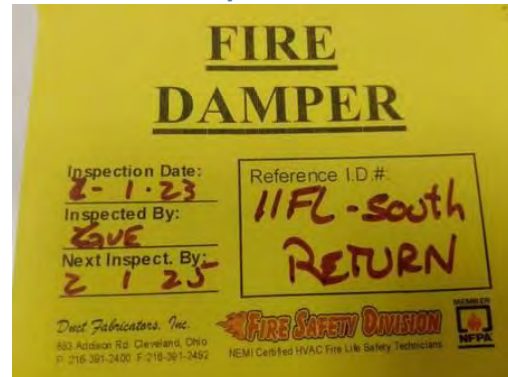 FIRE
DAMPER
Inspection Date:
2-1.23
Inspected By:
Next Inspect. By:
2 1 25
Reference I.D.#:
11FL-South
RETURN
Duct Fabricators, Inc.
883 Addison Rd. Cleveland, Ohio
P: 216-391-2400 F: 216-391-2492
FIRE SAFETY DIVISION
NEMI Certified HVAC Fire Life Safety Technicians
MEMBER
NFPA